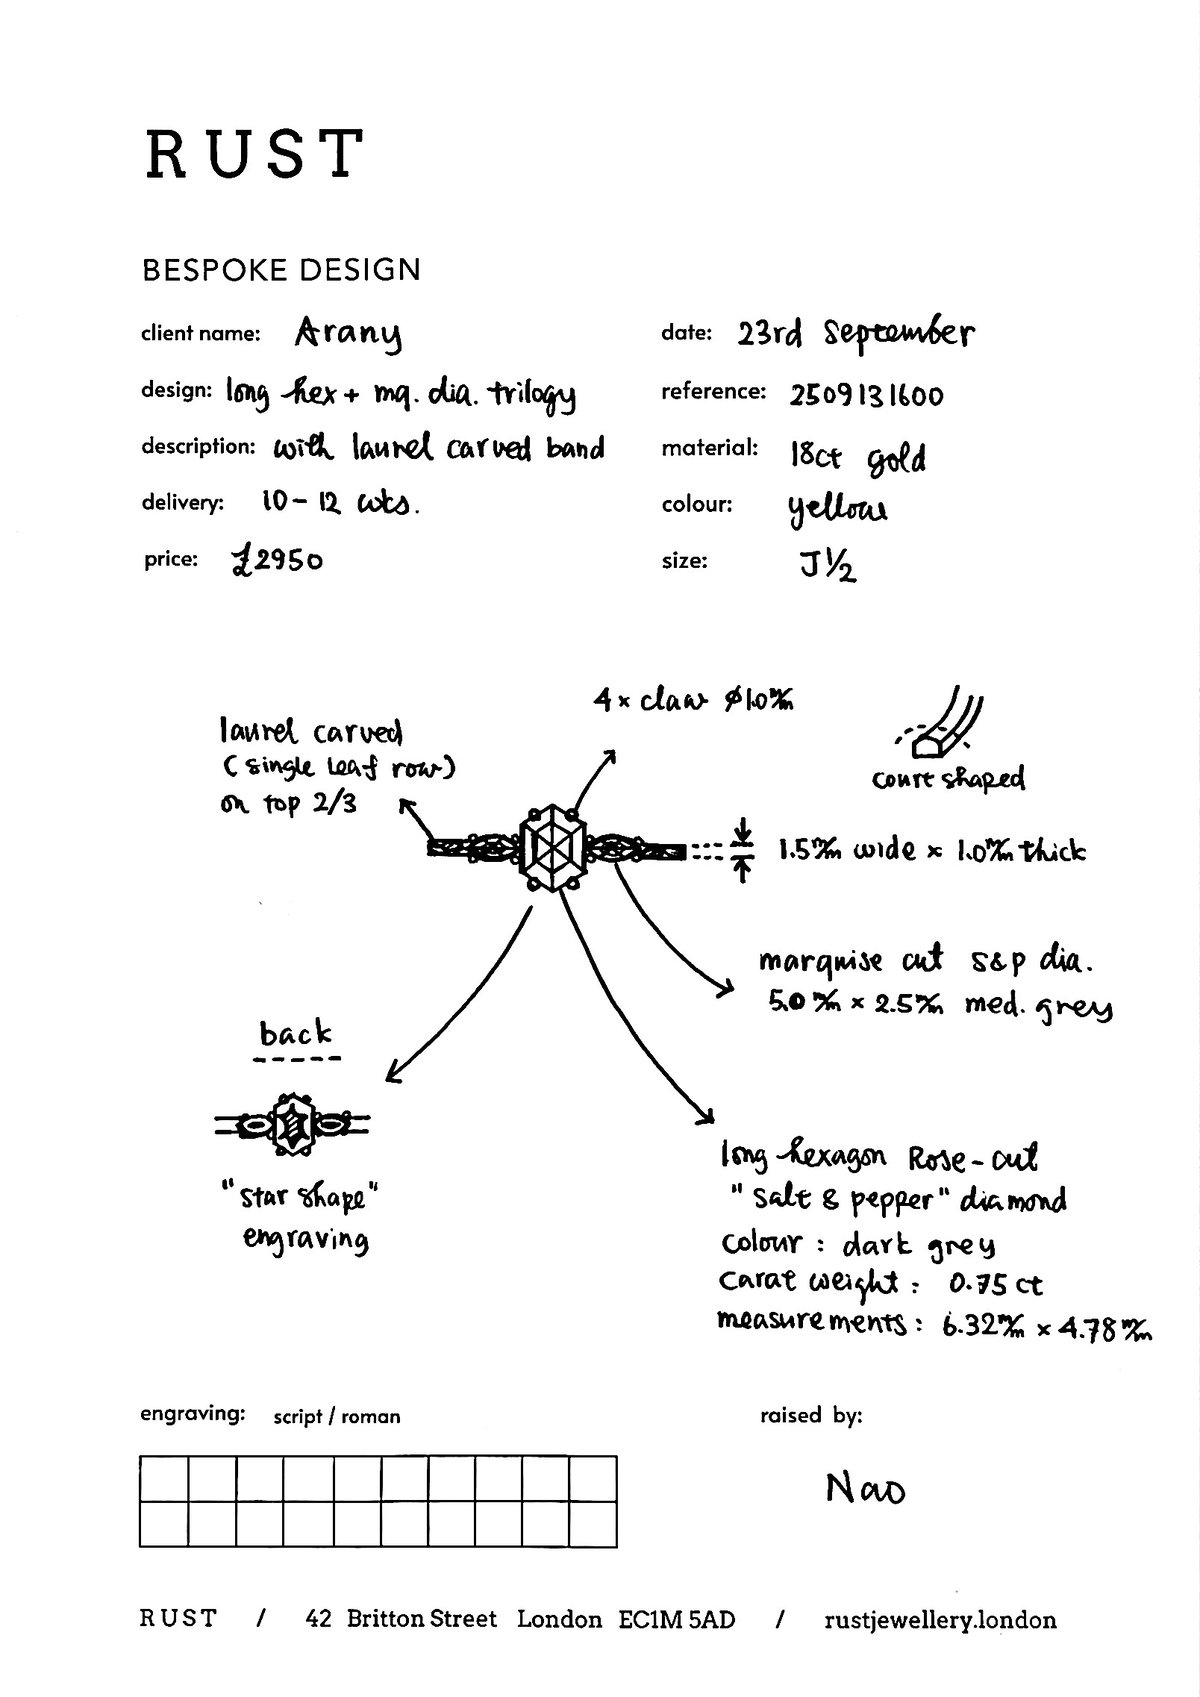 RUST
BESPOKE DESIGN
client name: Arany
date: 23rd September
design: long hex + mq. dia. trilogy
reference: 2509131600
description: with laurel carved band
material: 18ct gold
delivery: 10-12 wks.
colour: yellow
price: £2950
size: J1/2
4x claw ø1.0m/m
laurel carved
(single leaf row)
on top 2/3
court shaped
1.5m/m wide x 1.0m/m thick
marquise cut s&p dia.
5.0m/m x 2.5m/m med. grey
back
"star shape"
engraving
long hexagon Rose-cut
"salt & pepper" diamond
colour: dark grey
carat weight: 0.75ct
measurements: 6.32m/m x 4.78m/m
engraving: script / roman
raised by:
Nao
RUST / 42 Britton Street London EC1M 5AD / rustjewellery.london